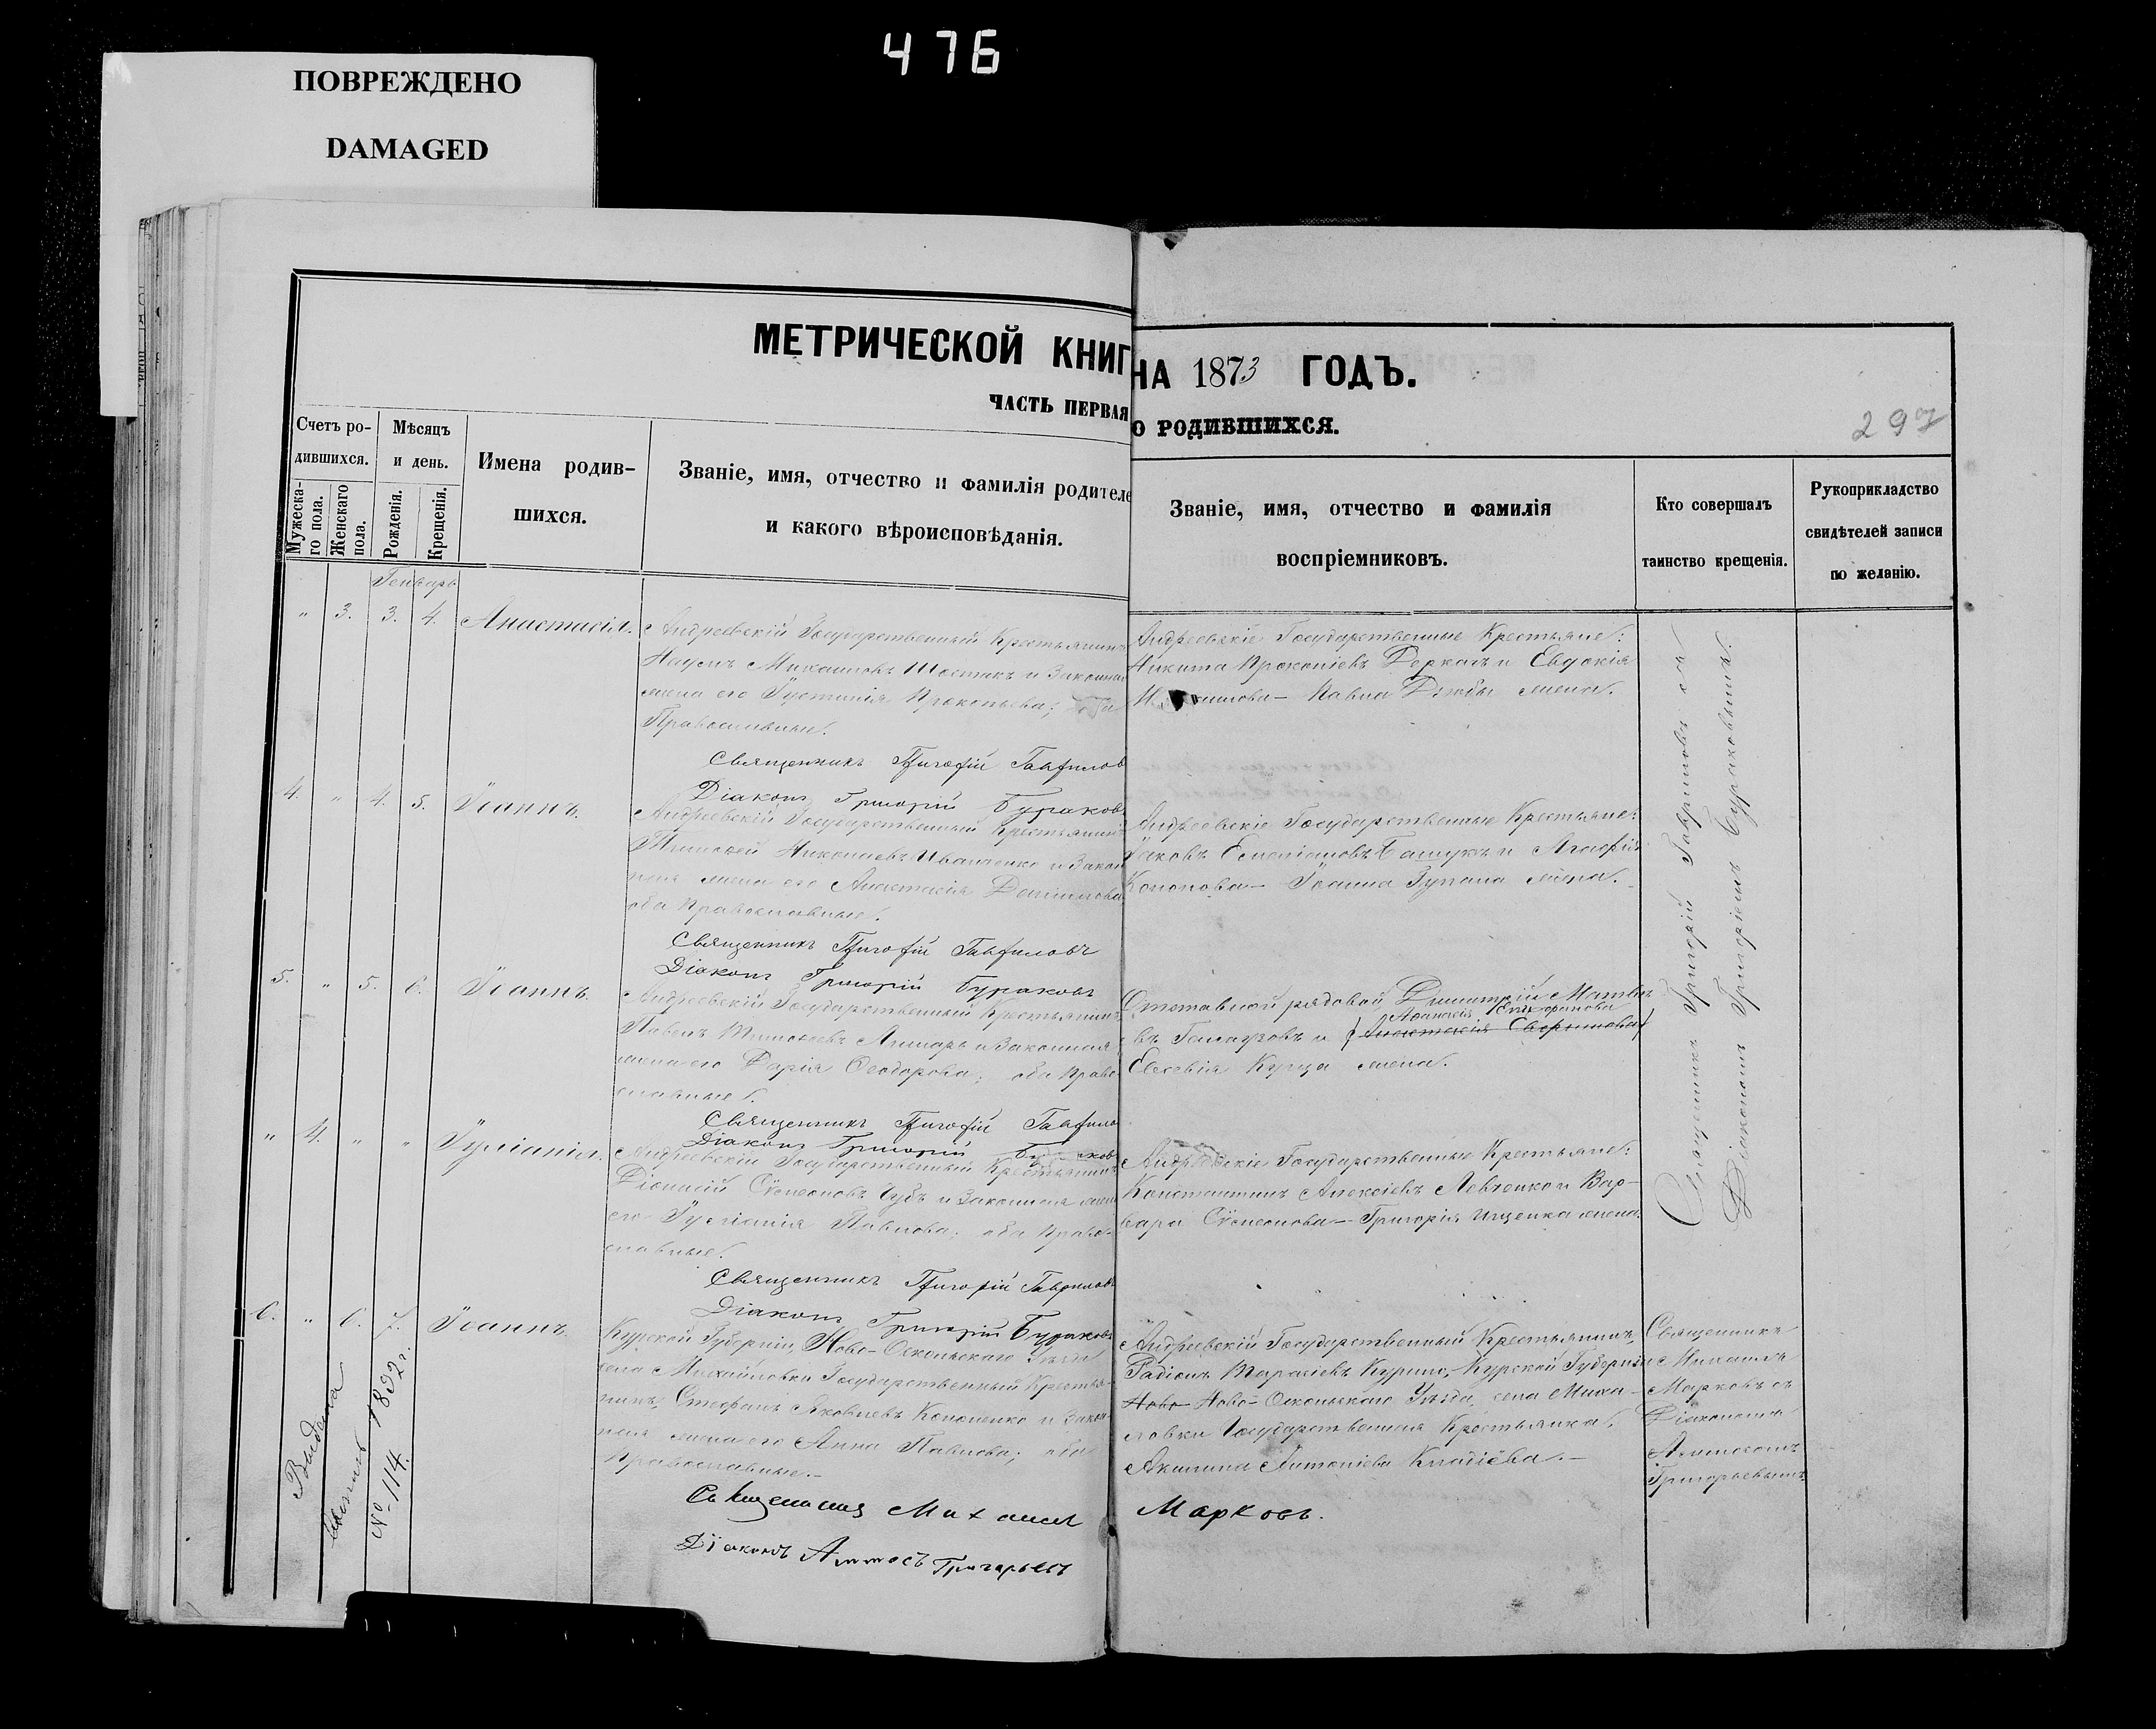 476
ПОВРЕЖДЕНО
DAMAGED
МЕТРИЧЕСКОЙ КНИГ
НА 1873 ГОДЪ.
ЧАСТЬ ПЕРВАЯ
О РОДИВШИХСЯ.
297
Счетъ ро-
дившихся.
Мужеска-
го пола.
Женскаго
пола.
Мѣсяцъ
и день.
Рожденія.
Крещенія.
Имена родив-
шихся.
Званіе, имя, отчество и фамилія родителе
и какого вѣроисповѣданія.
Званіе, имя, отчество и фамилія
воспріемниковъ.
Кто совершалъ
таинство крещенія.
Рукоприкладство
свидѣтелей записи
по желанію.
Генварь
" 3. 3. 4. Анастасія.
Андреевскій Государственный Крестьянинъ
Наумъ Михаиловъ Шостакъ и Законная
жена его Іустинія Прокопьева; оба
Православные.
Священникъ Григорій Гаврилов
Діаконъ Григорій Бураковъ
Андреевскіе Государственные Крестьяне:
Никита Прокопіевъ Деркачъ и Евдокія
Павла Дзюбы жена.
4. " 4. 5. Іоаннъ.
Андреевскій Государственный Крестьянинъ
Тимофей Николаевъ Иванченко и Закон
ная жена его Анастасія Даниилова
оба Православные.
Священникъ Григорій Гавриловъ
Діаконъ Григорій Бураковъ
Андреевскіе Государственные Крестьяне:
Іаковъ Емеліановъ Башукъ и Агафія
Кононова – Іоанна жена.
5. " 5. 6. Іоаннъ.
Андреевскій Государственный Крестьянинъ
Павелъ Тимофеевъ и Законная
жена его Дарія Ѳеодорова; оба Право-
славные.
Священникъ Григорій Гаврило
Діаконъ Григорій Бураковъ
Отставной рядовой Димитрій Матвѣе
въ и Анастасія
Евсевія Куща жена.
" 4. " " Іуліанія.
Андреевскій Государственный Крестьянинъ
Діонисій Сѵмеоновъ Чубъ и Законная жена
его Іуліанія Павлова; оба Право-
славные.
Священникъ Григорій Гавриловъ
Діаконъ Григорій Бураковъ
Андреевскіе Государственные Крестьяне:
Константинъ Алексіевъ Левченко и Вар-
вара Сѵмеонова – Григорія Ищенка жена.
Священникъ Григорій Гавриловъ съ
Діакономъ Григоріемъ Бураковымъ.
6. " 6. 7. Іоаннъ.
Курской Губерніи, Ново-Оскольскаго Уѣзда
села Михайловки Государственный Крестья-
нинъ, Стефанъ Яковлевъ Кононенко и Закон-
ная жена его Анна Павлова; оба
Православные. –
Священникъ Михаилъ
Марковъ.
Діаконъ Аммосъ Григорьевъ
Андреевскій Государственный Крестьянинъ,
Радіонъ Тарасіевъ Курило, – Курской Губерніи
Ново- Ново-Оскольскаго Уѣзда, села Михай-
ловки Государственная Крестьянка,
Акилина Антоніева
Священникъ
Михаилъ
Марковъ съ
Діакономъ
Аммосомъ
Григорьевымъ
Выдана
1892 г.
№ 114.